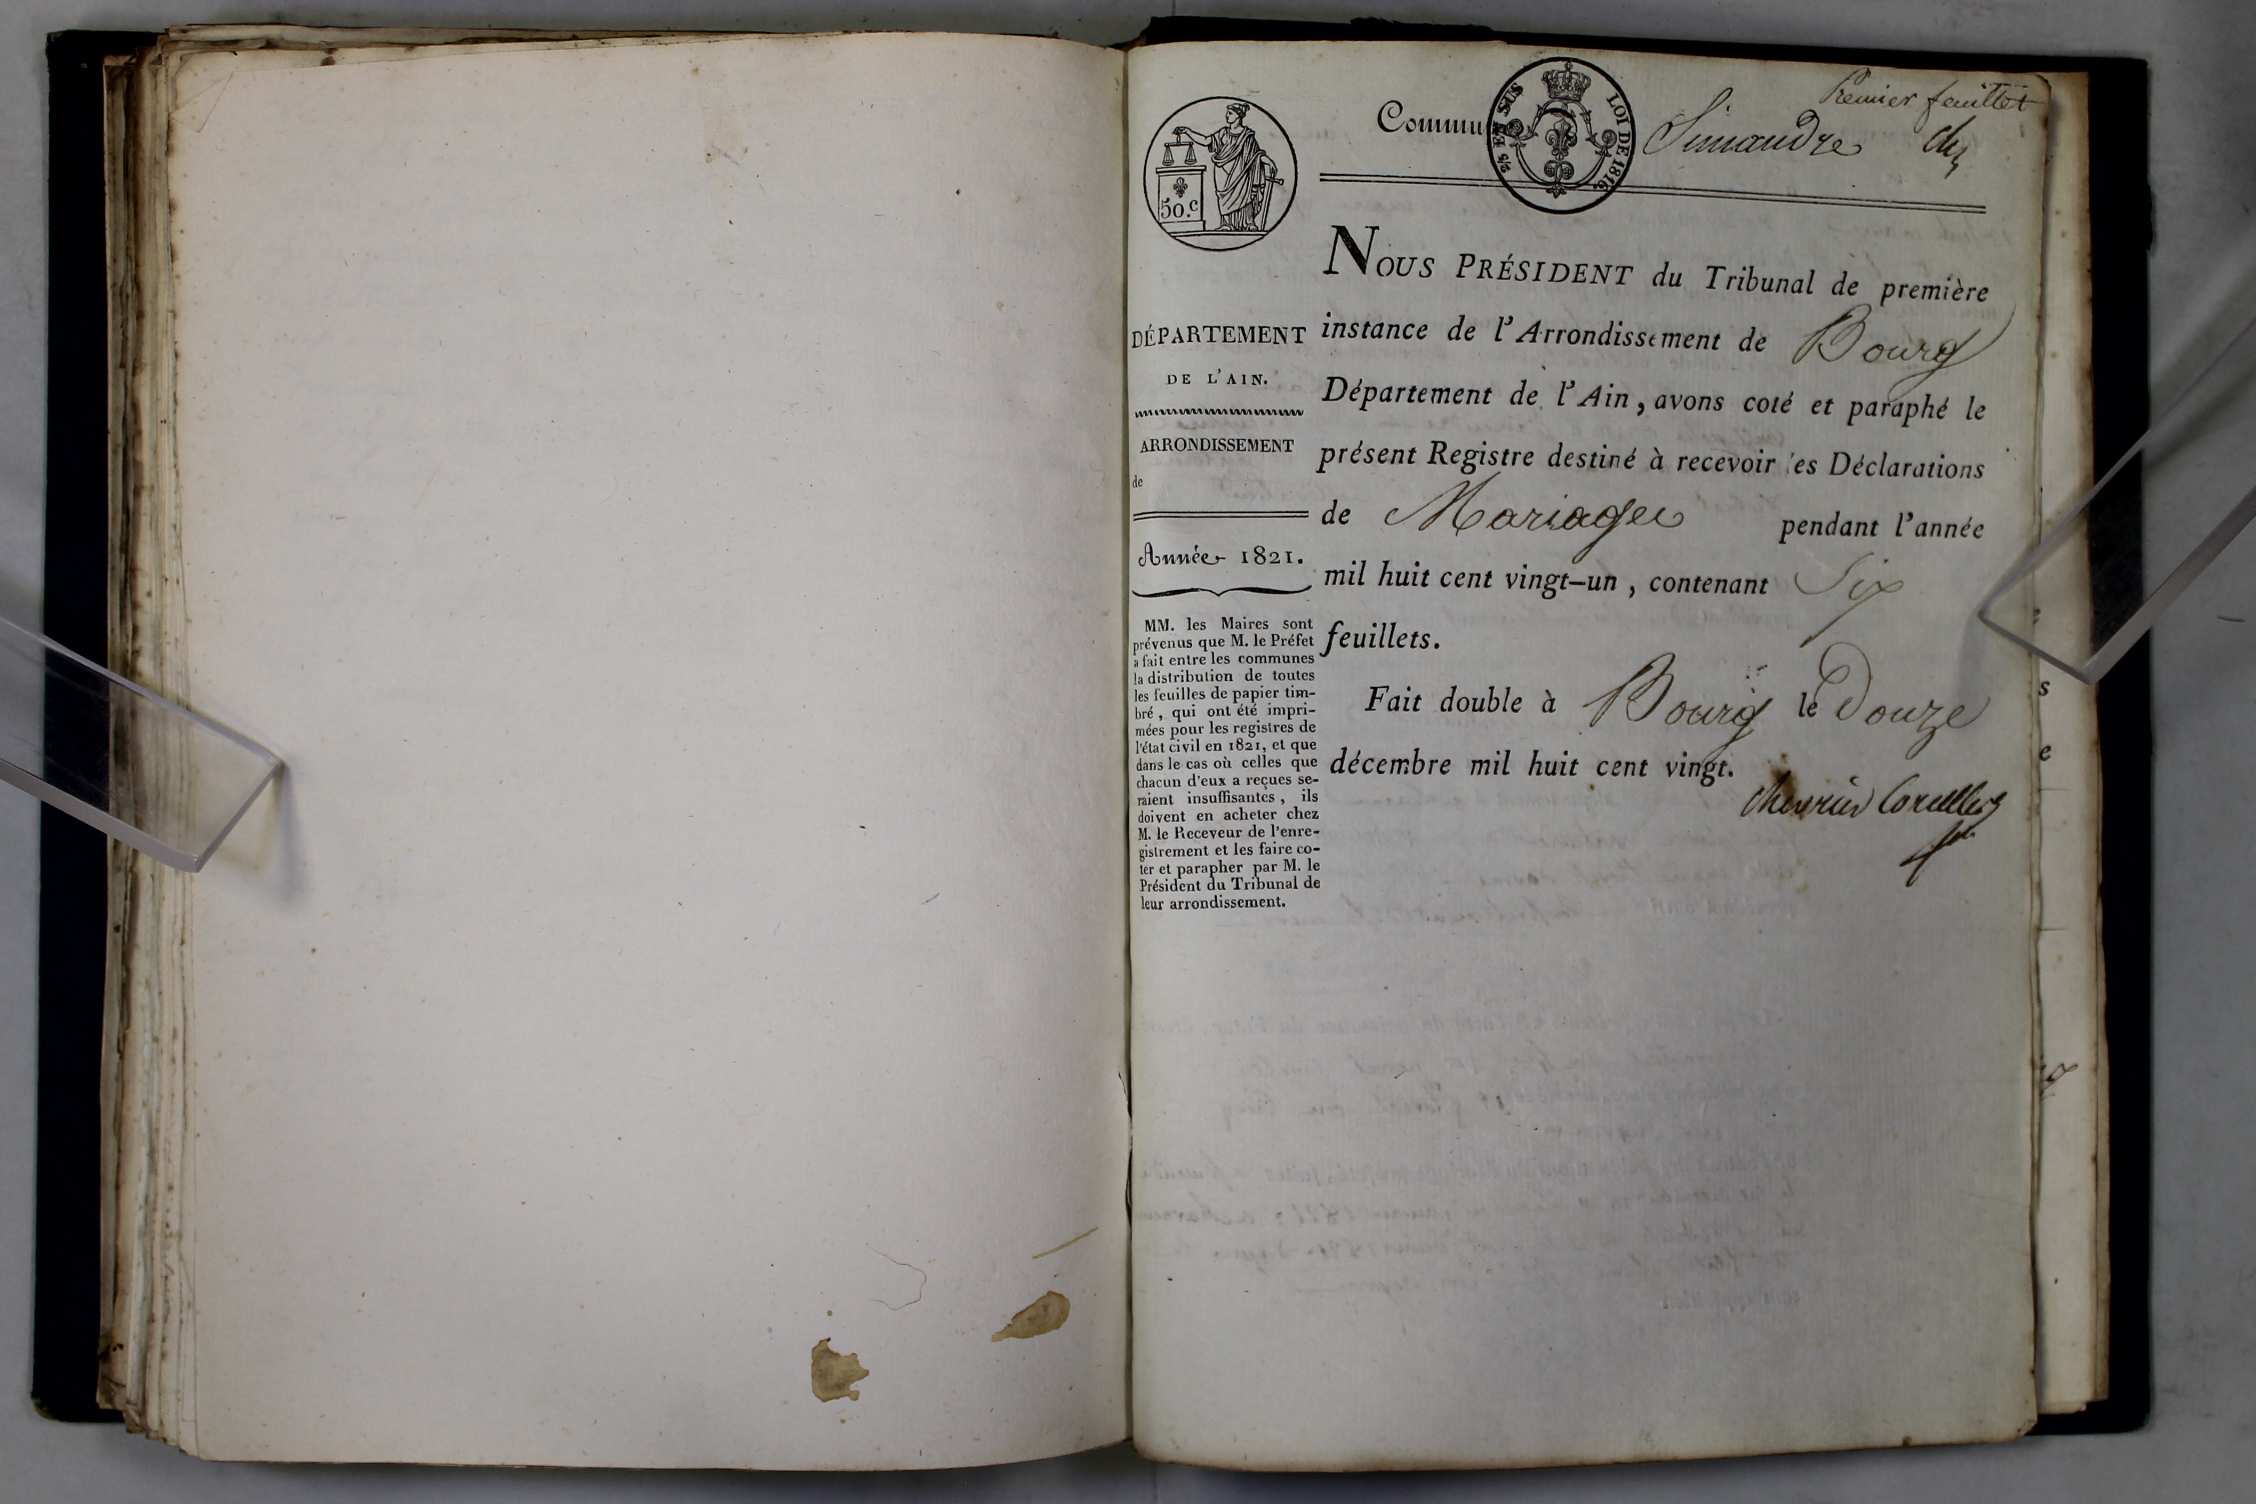 Premier feuillet
Commu Simandre
⅖ EN SUS LOI DE 1816.
50.c
NOUS PRÉSIDENT du Tribunal de première
instance de l'Arrondissement de Bourg
Département de l'Ain, avons coté et paraphé le
présent Registre destiné à recevoir les Déclarations
de Mariages pendant l'année
mil huit cent vingt-un, contenant Six
feuillets.
Fait double à Bourg le Douze
décembre mil huit cent vingt.
DÉPARTEMENT
DE L'AIN.
ARRONDISSEMENT
de
Année 1821.
MM. les Maires sont
prévenus que M. le Préfet
a fait entre les communes
la distribution de toutes
les feuilles de papier tim-
bré, qui ont été impri-
mées pour les registres de
l'état civil en 1821, et que
dans le cas où celles que
chacun d'eux a reçues se-
raient insuffisantes, ils
doivent en acheter chez
M. le Receveur de l'enre-
gistrement et les faire co-
ter et parapher par M. le
Président du Tribunal de
leur arrondissement.